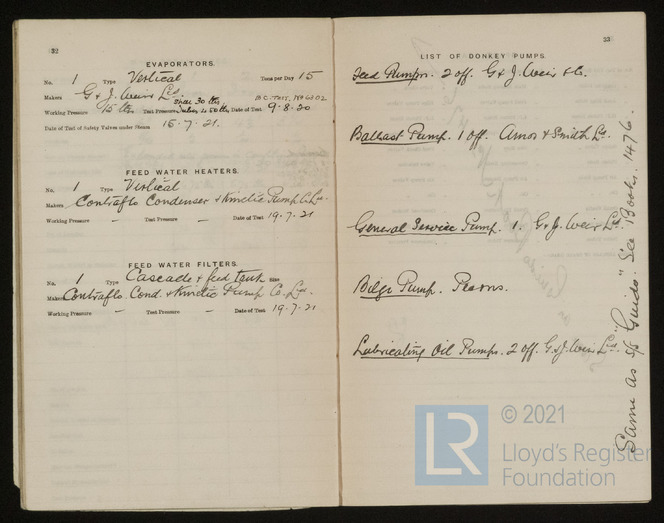 32
EVAPORATORS.
No. 1 Type Vertical Tons per Day 15
Makers G & J. Weir Ltd.
Working Pressure 15 lbs. Test Pressure Shell 30 lbs. Tubes 450 lbs Date of Test 9-8-20
Date of Test of Safety Valves under Steam 15-7-21.
FEED WATER HEATERS.
No. 1 Type Vertical
Makers Contraflo Condenser & Kinetic Pump Co Ltd.
Working Pressure – Test Pressure – Date of Test 19-7-21
FEED WATER FILTERS.
No. 1 Type Cascade & feed tank Size
Makers Contraflo Cond. & Kinetic Pump Co. Ltd.
Working Pressure – Test Pressure – Date of Test 19-7-21
33
LIST OF DONKEY PUMPS.
Feed Pumps. 2 off. G & J. Weir & Co.
Ballast Pump. 1 off. Amos & Smith Ld.
General Service Pump. 1. G & J. Weir Ltd.
Bilge Pump. Pearns.
Lubricating Oil Pumps. 2 off. G & J. Weir Ltd.
Same as S/S "Guido". See Books. 1476.
LR
© 2021
Lloyd's Register
Foundation